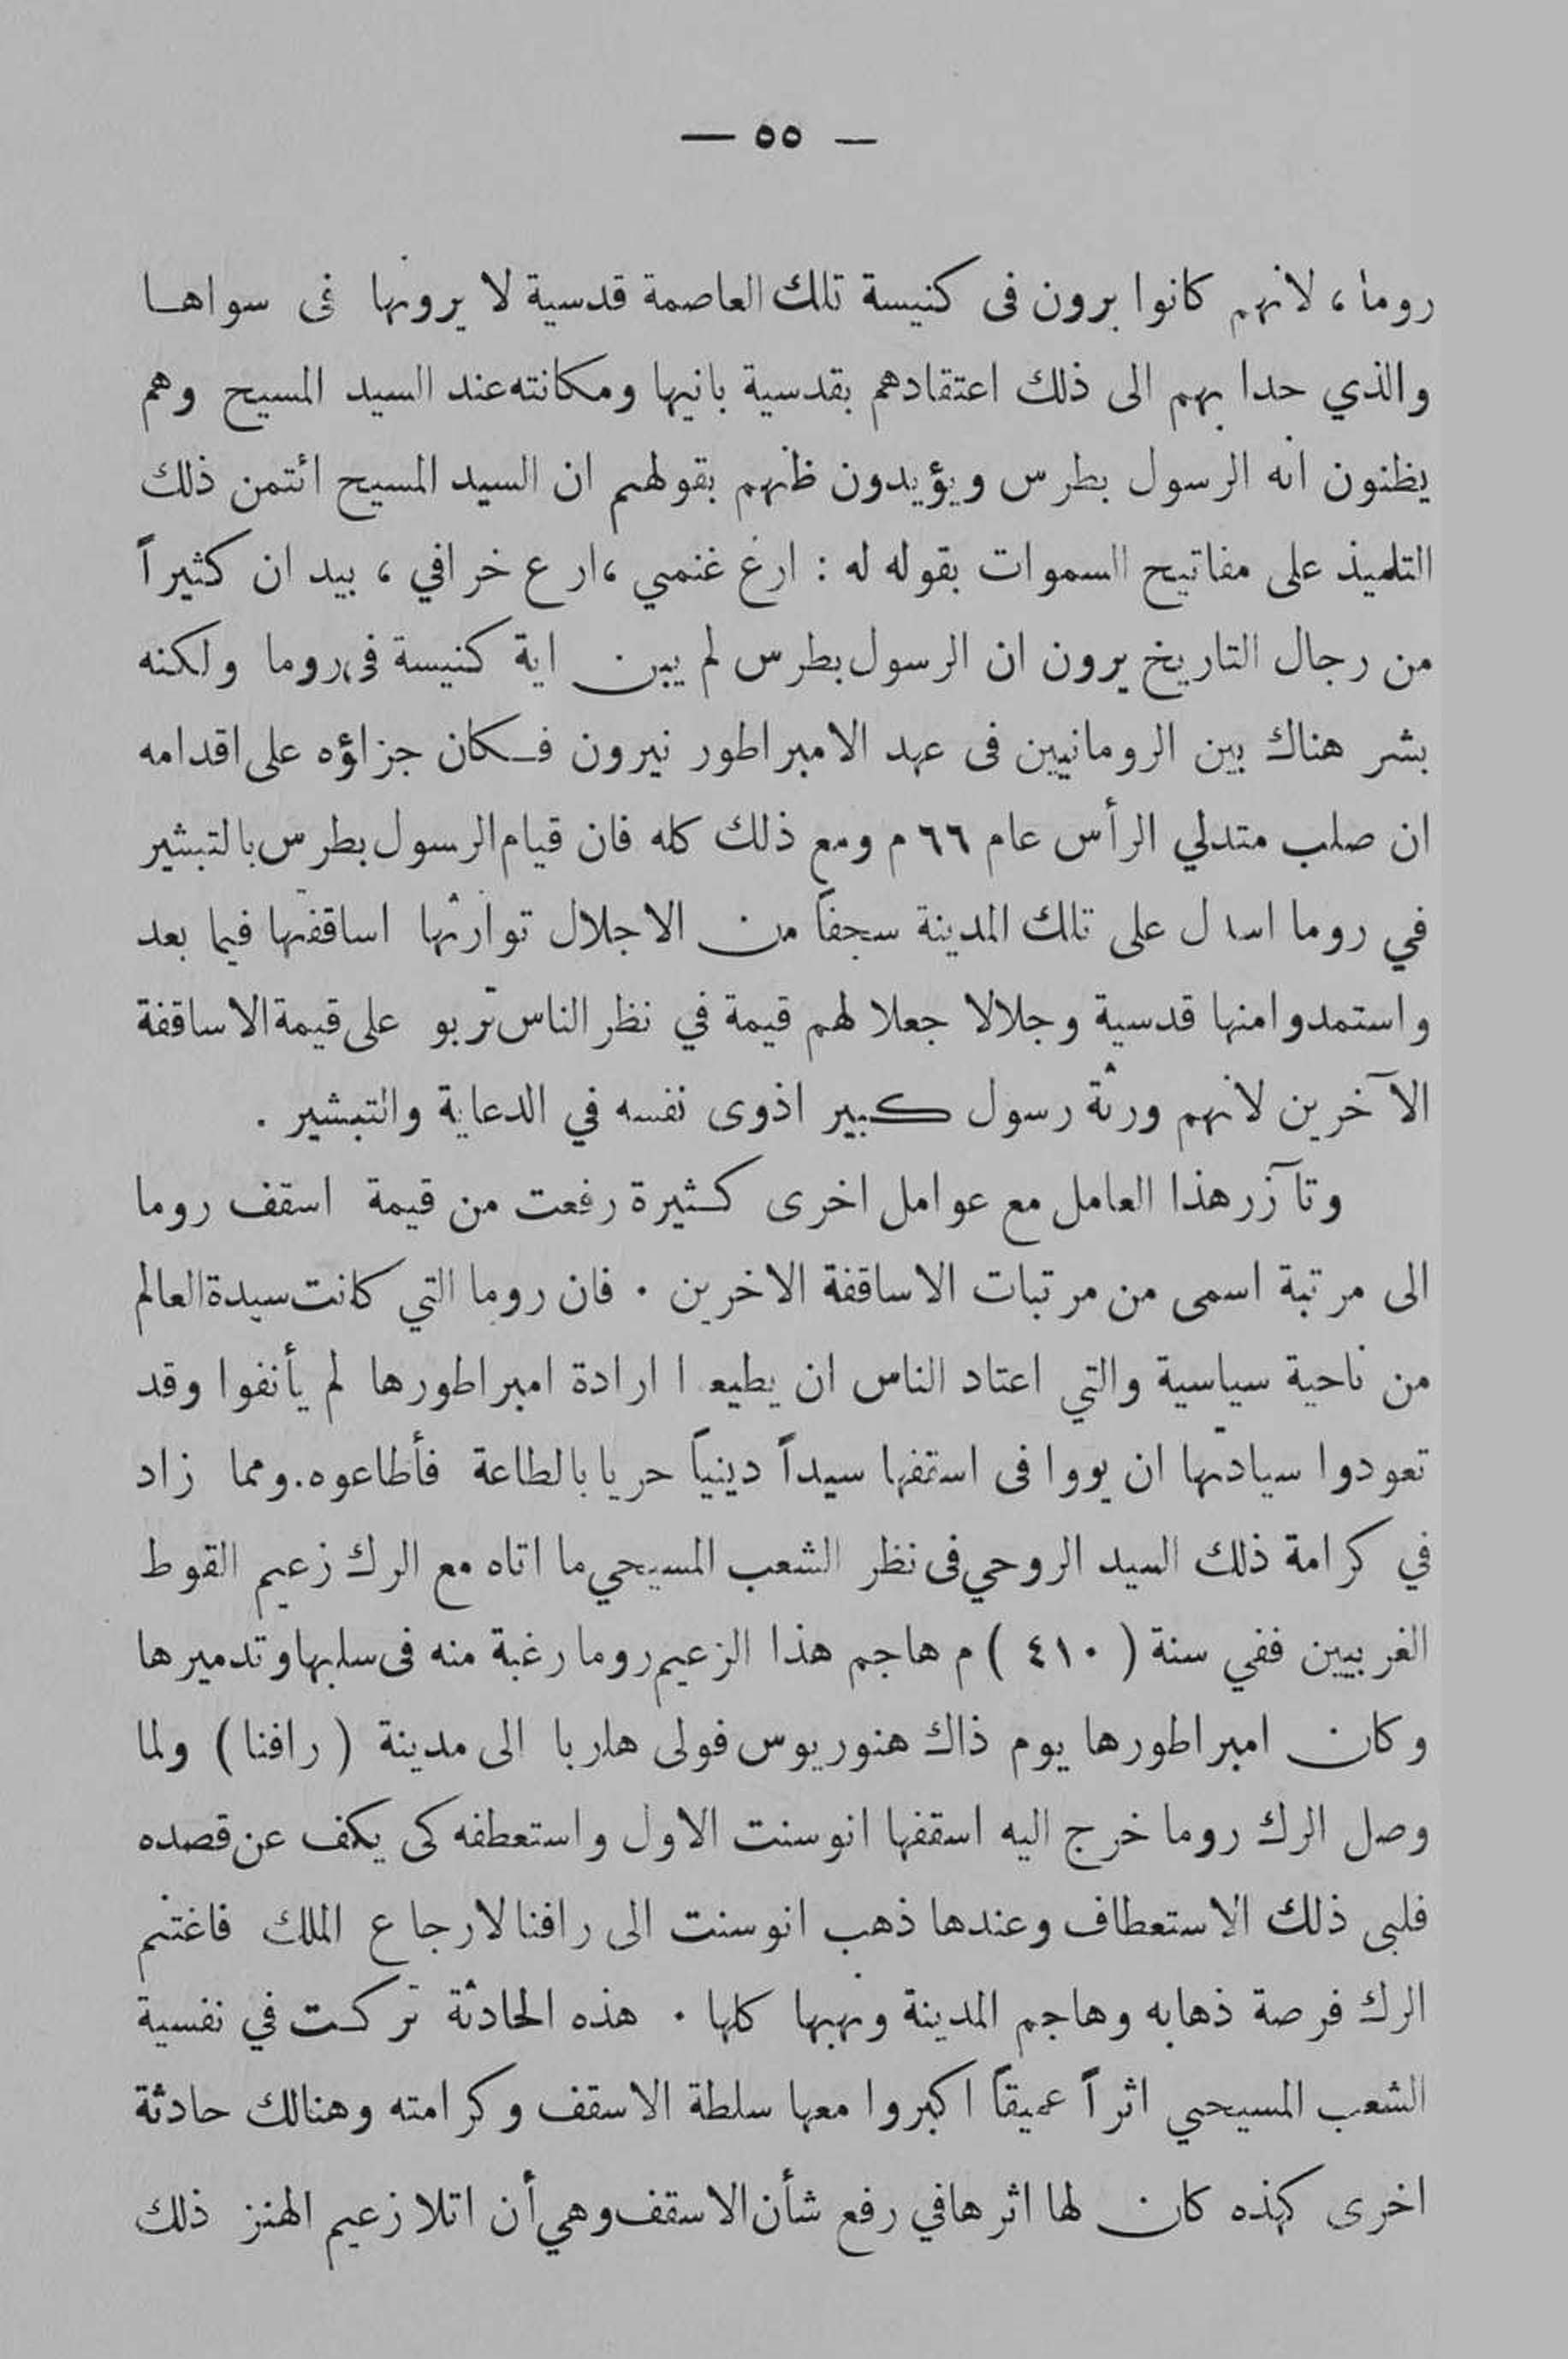 — ٥٥ —
روما ، لانهم كانوا يرون فى كنيسة تلك العاصمة قدسية لا يرونها فى سواها
والذي حدا بهم الى ذلك اعتقادهم بقدسية بانيها ومكانته عند السيد المسيح وهم
يظنون انه الرسول بطرس ويؤيدون ظنهم بقولهم ان السيد المسيح ائتمن ذلك
التلميذ على مفاتيح السموات بقوله له : ارع غنمي ، ارع خرافي ، بيد ان كثيراً
من رجال التاريخ يرون ان الرسول بطرس لم يبن اية كنيسة فى روما ولكنه
بشر هناك بين الرومانيين فى عهد الامبراطور نيرون فكان جزاؤه على اقدامه
ان صلب متدلي الرأس عام ٦٦ م ومع ذلك كله فان قيام الرسول بطرس بالتبشير
في روما اسدل على تلك المدينة سجفاً من الاجلال توارثها اساقفتها فيما بعد
واستمدوا منها قدسية وجلالا جعلا لهم قيمة في نظر الناس تربو على قيمة الاساقفة
الآخرين لانهم ورثة رسول كبير اذوى نفسه في الدعاية والتبشير .
وتآزر هذا العامل مع عوامل اخرى كثيرة رفعت من قيمة اسقف روما
الى مرتبة اسمى من مرتبات الاساقفة الاخرين . فان روما التي كانت سيدة العالم
من ناحية سياسية والتي اعتاد الناس ان يطيعوا ارادة امبراطورها لم يأنفوا وقد
تعودوا سيادتها ان يروا فى اسقفها سيداً دينياً حريا بالطاعة فأطاعوه . ومما زاد
في كرامة ذلك السيد الروحي فى نظر الشعب المسيحي ما اتاه مع الرك زعيم القوط
الغربيين ففي سنة ( ٤١٠ ) م هاجم هذا الزعيم روما رغبة منه فى سلبها وتدميرها
وكان امبراطورها يوم ذاك هنوريوس فولى هاربا الى مدينة ( رافنا ) ولما
وصل الرك روما خرج اليه اسقفها انوسنت الاول واستعطفه كى يكف عن قصده
فلبى ذلك الاستعطاف وعندها ذهب انوسنت الى رافنا لارجاع الملك فاغتنم
الرك فرصة ذهابه وهاجم المدينة ونهبها كلها . هذه الحادثة تركت في نفسية
الشعب المسيحي اثراً عميقاً اكبروا معها سلطة الاسقف وكرامته وهنالك حادثة
اخرى كهذه كان لها اثرها في رفع شأن الاسقف وهي أن اتلا زعيم الهنز ذلك